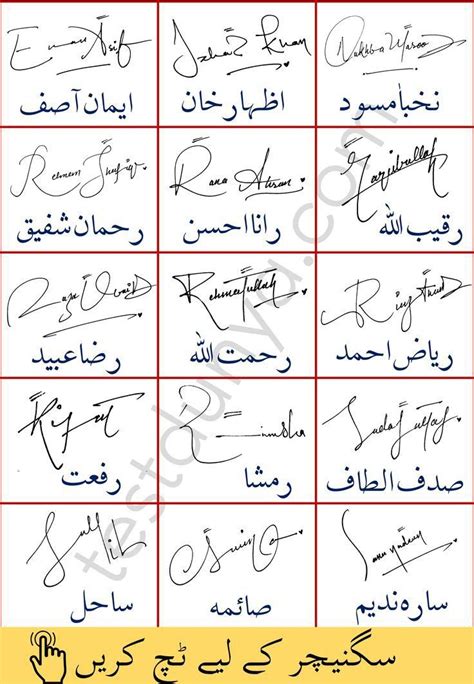 Eman Asif
ایمان آصف
Izhar Khan
اظہار خان
Nakhba Masood
نخبأ مسود
Rehman Shafiq
رحمان شفیق
Rana Ahsan
رانا احسن
Raqibullah
رقیب اللہ
Raza Ubaid
رضا عبید
Rehmatullah
رحمت اللہ
Riaz Ahmad
ریاض احمد
Rifat
رفعت
Rimsha
رمشا
Sadaf Altaf
صدف الطاف
Sahil
ساحل
Saima
صائمہ
Sara Nadeem
سارہ ندیم
testdunya.com
سگنیچر کے لیے ٹچ کریں